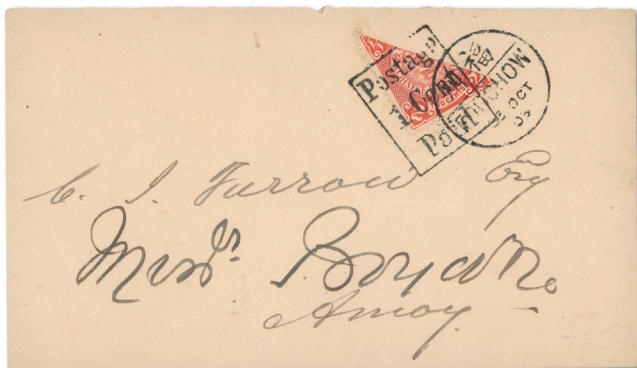 Postage
1 Cent
Paid
福
FOOCHOW
OCT
03
C. J. Farrow Esq
Messrs. Boyd & Co.
Amoy.